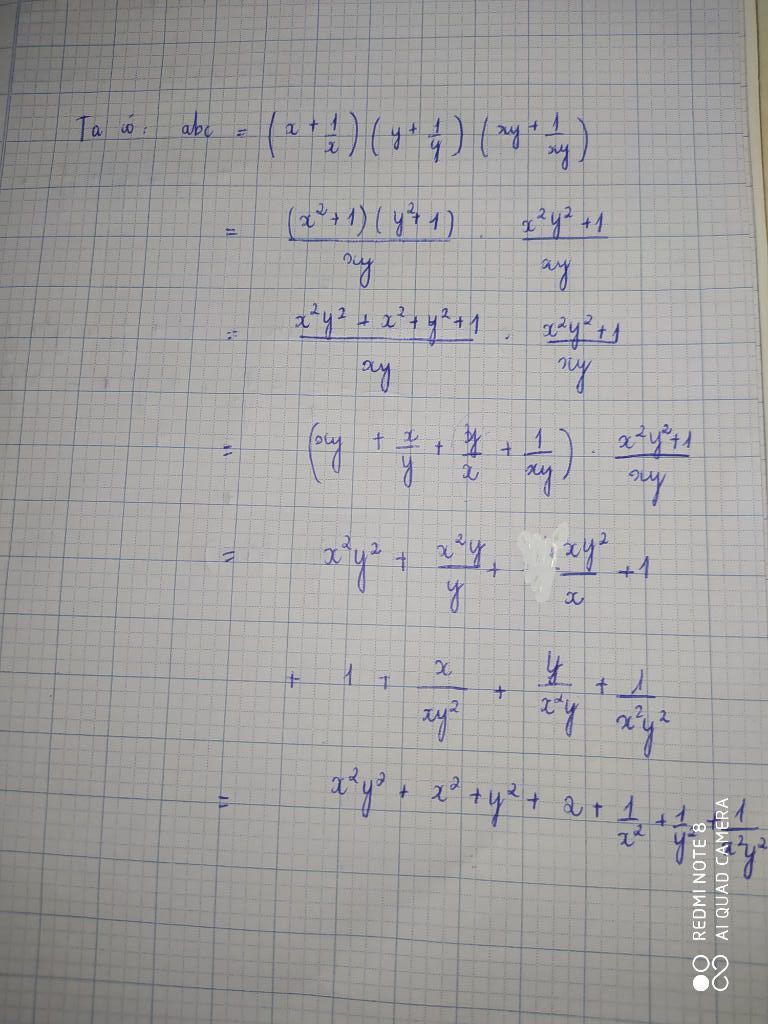 Ta có: abc = (x + 1/x) (y + 1/y) (xy + 1/xy)
= (x²+1)(y²+1)/xy . x²y²+1/xy
= x²y² + x² + y² + 1/xy . x²y²+1/xy
= (xy + x/y + y/x + 1/xy) . x²y²+1/xy
= x²y² + x²y/y + xy²/x + 1
+ 1 + x/xy² + y/x²y + 1/x²y²
= x²y² + x² + y² + 2 + 1/x² + 1/y² + 1/x²y²
REDMI NOTE 8
AI QUAD CAMERA